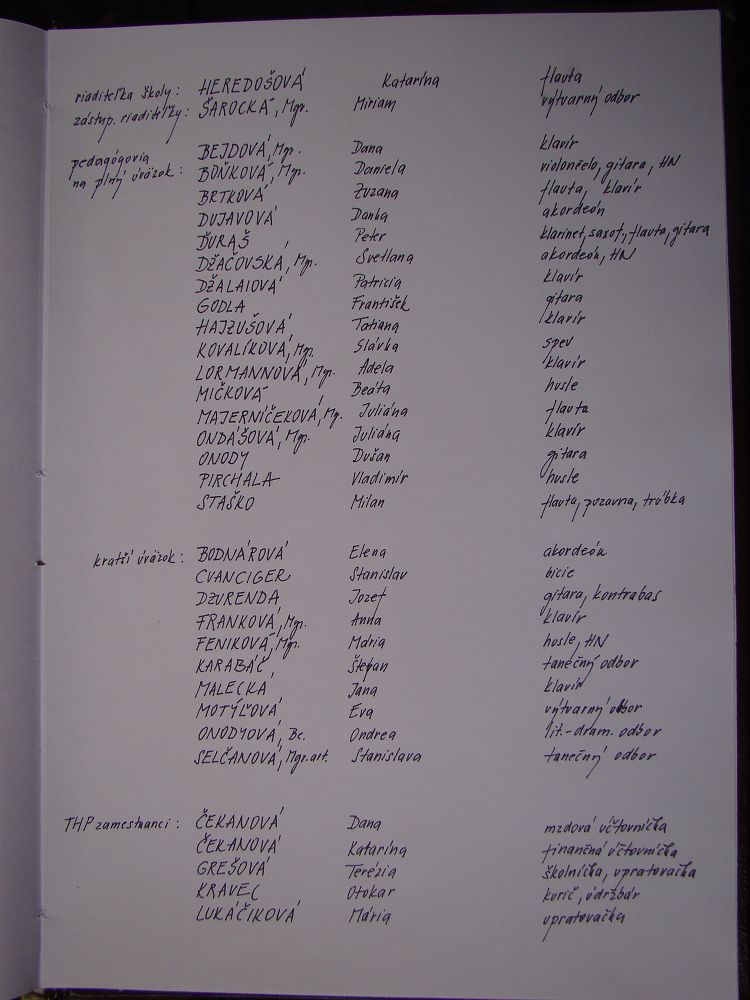 riaditeľka školy: HEREDOŠOVÁ Katarína flauta
zástup. riaditeľky: ŠAROCKÁ, Mgr. Miriam výtvarný odbor
pedagógovia BEJDOVÁ, Mgr. Dana klavír
na plný úväzok: BOŇKOVÁ, Mgr. Daniela violončelo, gitara, HN
BRTKOVÁ Zuzana flauta, klavír
DUJAVOVÁ Danka akordeón
ĎURAŠ Peter klarinet, saxof., flauta, gitara
DŽAČOVSKÁ, Mgr. Svetlana akordeón, HN
DŽALAIOVÁ Patrícia klavír
GODLA František gitara
HAJZUŠOVÁ Tatiana klavír
KOVALÍKOVÁ, Mgr. Slávka spev
LORMANNOVÁ, Mgr. Adela klavír
MIČKOVÁ Beáta husle
MAJERNÍČEKOVÁ, Mg. Juliána flauta
ONDÁŠOVÁ, Mgr. Juliána klavír
ONODY Dušan gitara
PIRCHALA Vladimír husle
STAŠKO Milan flauta, pozauna, trúbka
kratší úväzok: BODNÁROVÁ Elena akordeón
CVANCIGER Stanislav bicie
DZURENDA Jozef gitara, kontrabas
FRANKOVÁ, Mgr. Anna klavír
FENIKOVÁ, Mgr. Mária husle, HN
KARABÁČ Štefan tanečný odbor
MALECKÁ Jana klavír
MOTÝĽOVÁ Eva výtvarný odbor
ONODYOVÁ, Bc. Ondrea lit.-dram. odbor
SELČANOVÁ, Mgr. art. Stanislava tanečný odbor
THP zamestnanci: ČEKANOVÁ Dana mzdová účtovníčka
ČEKANOVÁ Katarína finančná účtovníčka
GREŠOVÁ Terézia školníčka, upratovačka
KRAVEC Otokar kurič, údržbár
LUKÁČIKOVÁ Mária upratovačka